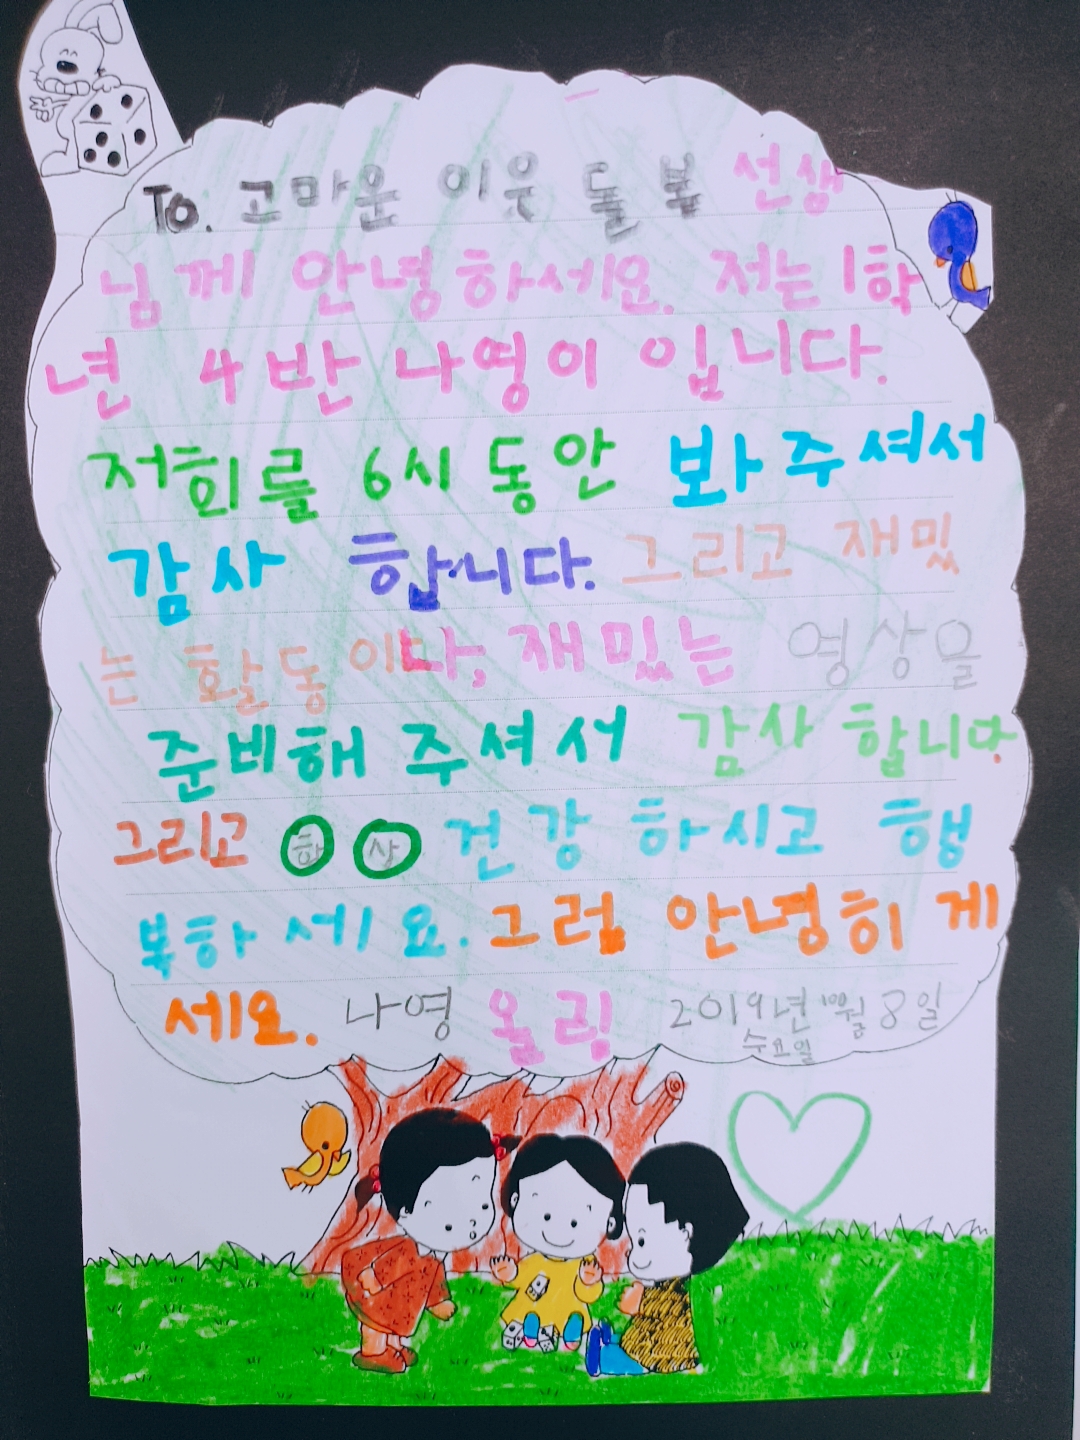 To. 고마운 이웃 돌봄 선생
님께 안녕하세요. 저는 1학
년 4반 나영이 입니다.
저희를 6시 동안 봐주셔서
감사 합니다. 그리고 재밌
는 활동이다, 재밌는 영상을
준비해 주셔서 감사 합니다.
그리고 항상 건강 하시고 행
복하세요. 그럼 안녕히 게
세요. 나영 올림 2019년 8일
수요일